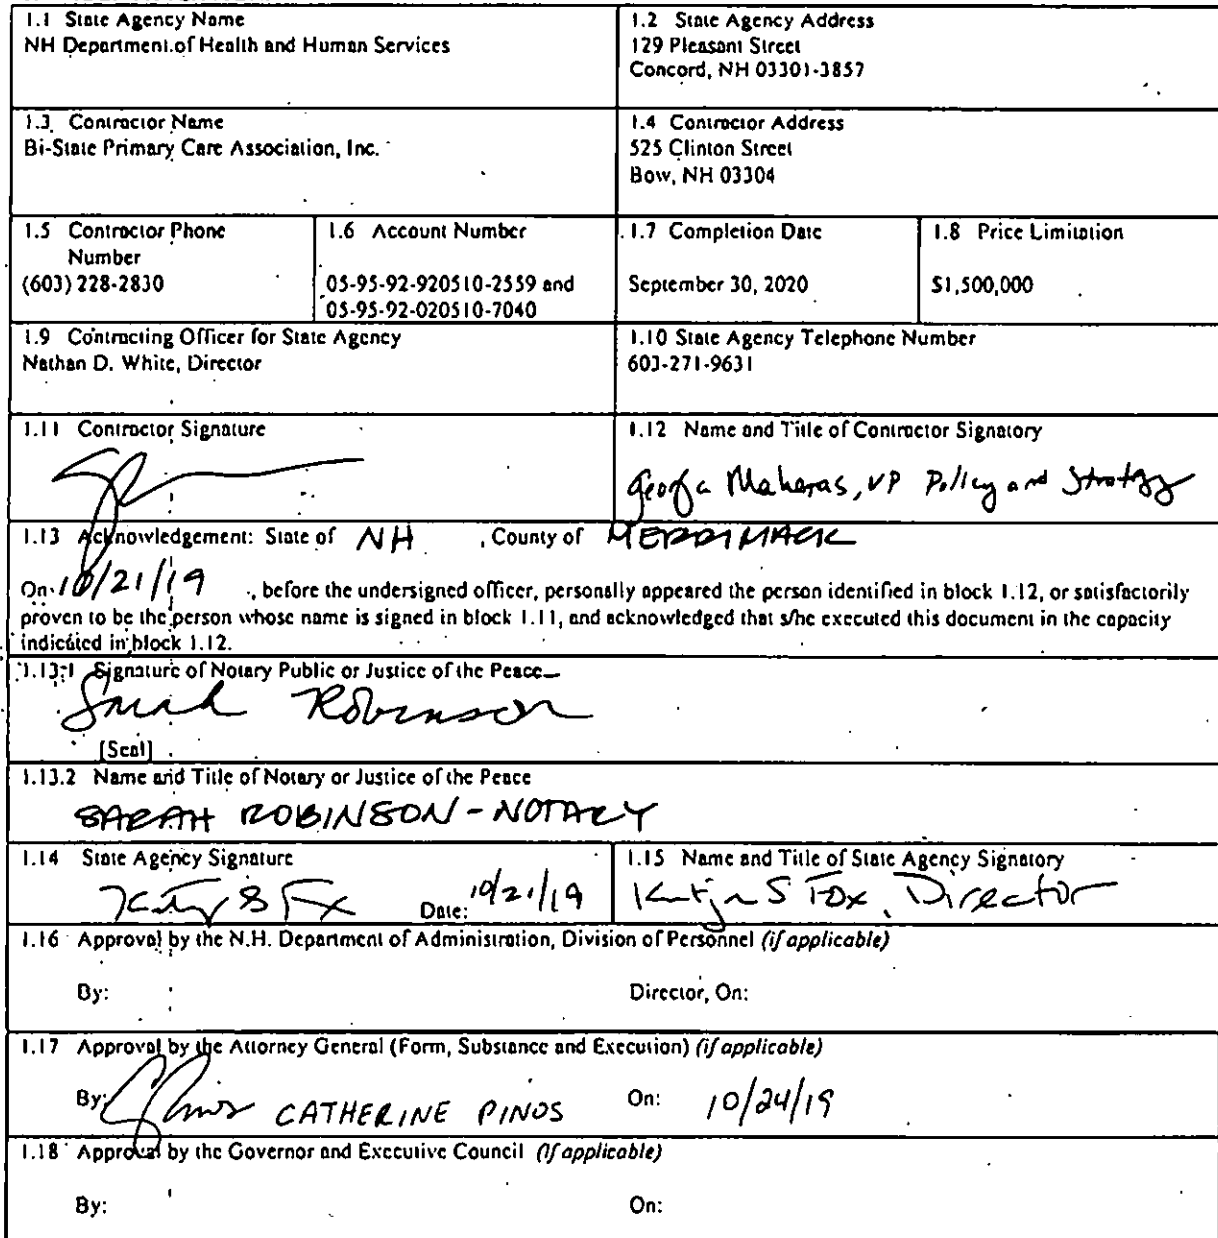 1.1 State Agency Name
NH Department of Health and Human Services
1.2 State Agency Address
129 Pleasant Street
Concord, NH 03301-3857
1.3 Contractor Name
Bi-State Primary Care Association, Inc.
1.4 Contractor Address
525 Clinton Street
Bow, NH 03304
1.5 Contractor Phone
Number
(603) 228-2830
1.6 Account Number
05-95-92-920510-2559 and
05-95-92-020510-7040
1.7 Completion Date
September 30, 2020
1.8 Price Limitation
$1,500,000
1.9 Contracting Officer for State Agency
Nathan D. White, Director
1.10 State Agency Telephone Number
603-271-9631
1.11 Contractor Signature
1.12 Name and Title of Contractor Signatory
Georgia Maheras, VP Policy and Strategy
1.13 Acknowledgement: State of NH , County of MERRIMACK
On 10/21/19 , before the undersigned officer, personally appeared the person identified in block 1.12, or satisfactorily
proven to be the person whose name is signed in block 1.11, and acknowledged that s/he executed this document in the capacity
indicated in block 1.12.
1.13.1 Signature of Notary Public or Justice of the Peace
Sarah Robinson
[Seal]
1.13.2 Name and Title of Notary or Justice of the Peace
SARAH ROBINSON - NOTARY
1.14 State Agency Signature
Date: 10/21/19
1.15 Name and Title of State Agency Signatory
S Fox, Director
1.16 Approval by the N.H. Department of Administration, Division of Personnel (if applicable)
By: Director, On:
1.17 Approval by the Attorney General (Form, Substance and Execution) (if applicable)
By: CATHERINE PINOS On: 10/24/19
1.18 Approval by the Governor and Executive Council (if applicable)
By: On: